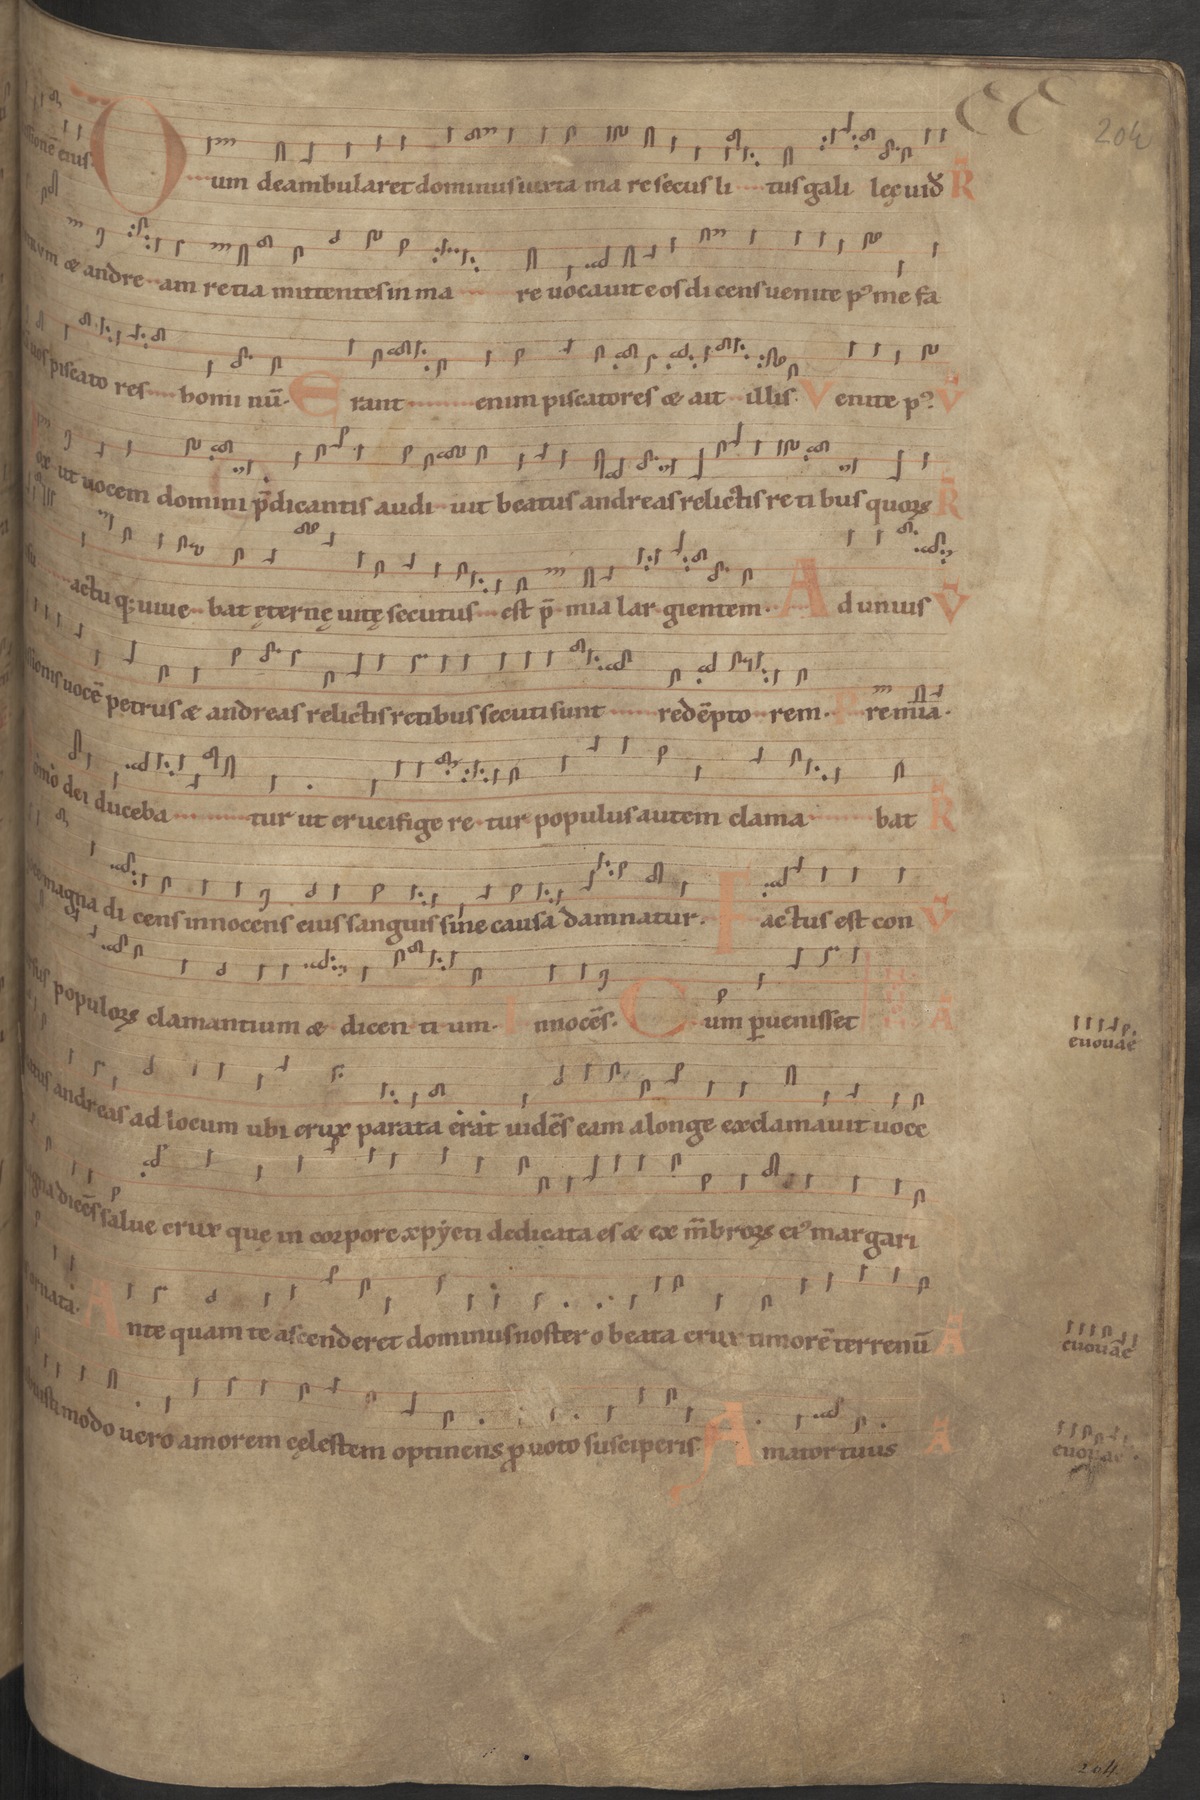 CC 204
stionē eius. Dum deambularet dominus iuxta mare secus litus galileę uid R
trum & andream retia mittentes in mare uocauit eos dicens uenite p' me fa
uos piscatores hominū. Erant enim piscatores & ait illis. Venite p'. V
ox ut uocem domini p̄dicantis audiuit beatus andreas relictis retibus quorum R
actuq; uiuebat ęternę uitę secutus est p̄mia largientem. Ad unius V
sionis uocē petrus & andreas relictis retibus secuti sunt redēptorem. Premia.
omo dei ducebatur ut crucifige retur populus autem clamabat R
magna dicens innocens eius sanguis sine causa damnatur. Factus est con V
sus populorum clamantium & dicentium. Innocēs. Cum peruenisset A
euouae
atus andreas ad locum ubi crux parata erat uidēs eam a longe exclamauit uoce
gna dicēs salue crux que in corpore xpỹeti dedicata es & ex mēbrorum ei' margari
ornata. Antequam te ascenderet dominus noster o beata crux timorē terrenū A
euouae
buisti modo uero amorem cęlestem optinens pro uoto susciperis. Amator tuus A
euouae
204